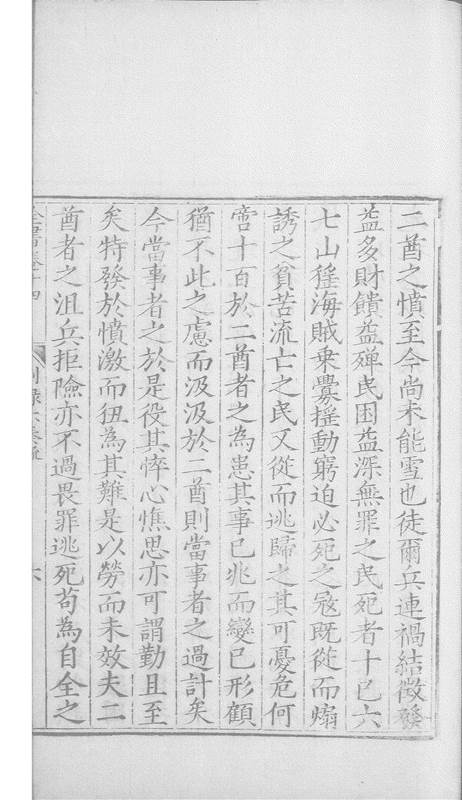 二酋之憤至今尚未能雪也徒爾兵連禍結徵發
益多財饋益殫民困益深無罪之民死者十已六
七山猺海賊乗釁揺動窮迫必死之寇既從而煽
誘之貧苦流亡之民又從而逃歸之其可憂危何
啻十百於二酋者之為患其事已兆而變已形顧
猶不此之慮而汲汲於二酋則當事者之過計矣
今當事者之於是役其悴心憔思亦可謂勤且至
矣特發於憤激而狃為其難是以勞而未效夫二
酋者之沮兵拒險亦不過畏罪逃死苟為自全之
全書卷十四
別錄六奏疏
六